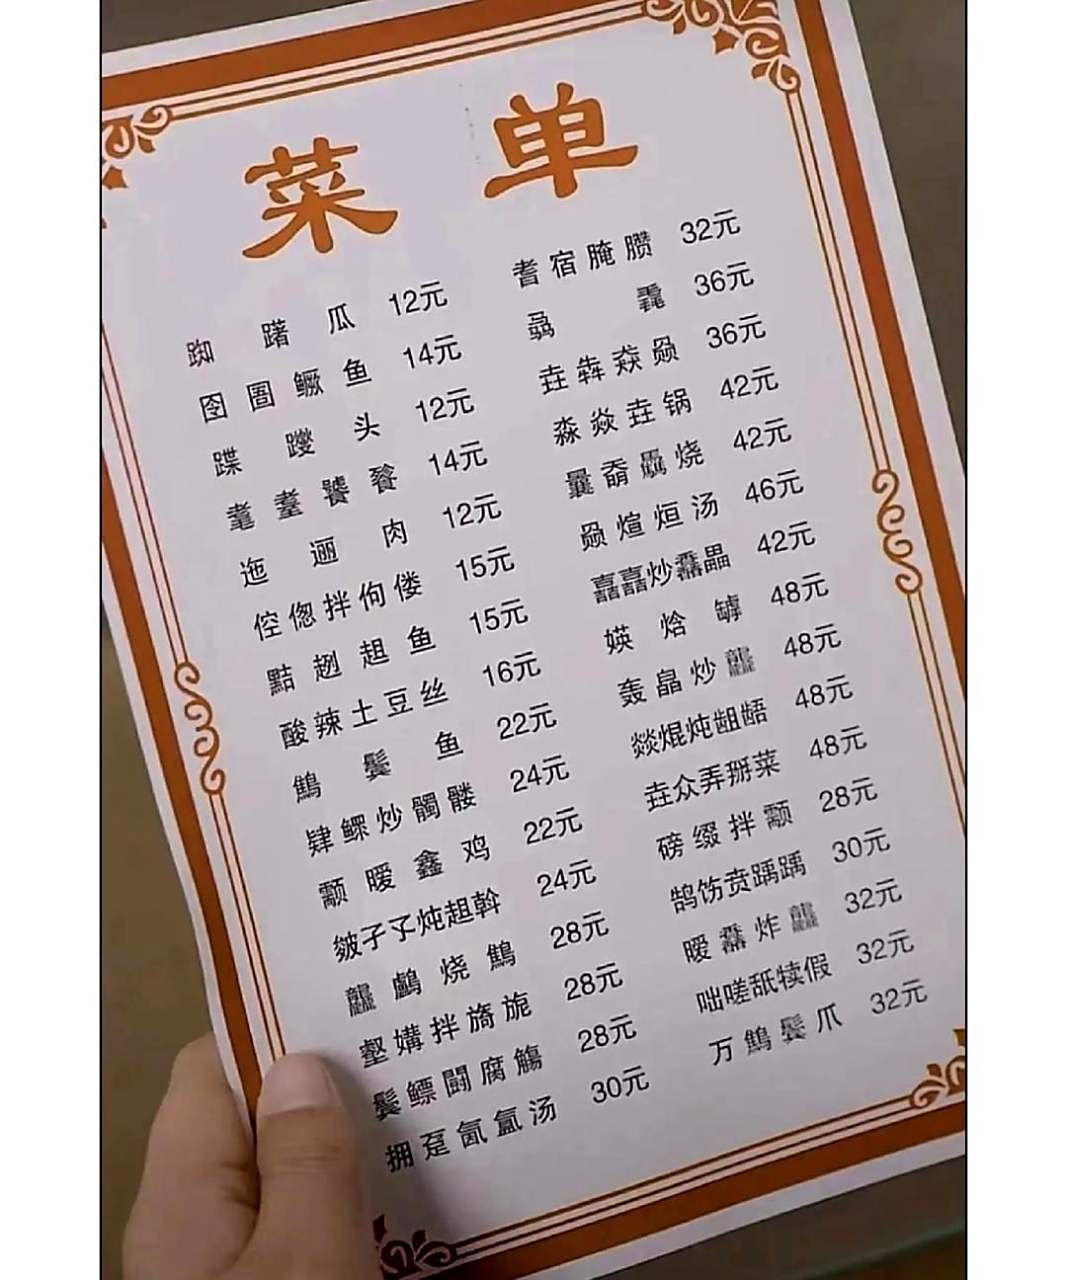 菜单
踟躇瓜 12元
囹圄鳜鱼 14元
蹀躞头 12元
耄耋饕餮 14元
迤逦肉 12元
倥偬拌佝偻 15元
黠趔趄鱼 15元
酸辣土豆丝 16元
鬓鱼 22元
肄鳏炒髑髅 24元
颥暧鑫鸡 22元
皴孑孓炖趄斡 24元
龘烧 28元
壑媾拌旖旎 28元
鬓鳔闘腐觞 28元
拥趸氤氲汤 30元
耆宿腌臜 32元
毳 36元
垚犇猋赑 36元
淼焱垚锅 42元
烧 42元
赑煊烜汤 46元
嚞嚞炒馫畾 42元
媖焓罅 48元
轰皛炒龘 48元
燚焜炖龃龉 48元
垚众弄掰菜 48元
磅缀拌颥 28元
鹄饬贲踽踽 30元
暧馫炸龘 32元
咄嗟舐犊假 32元
万鬓爪 32元